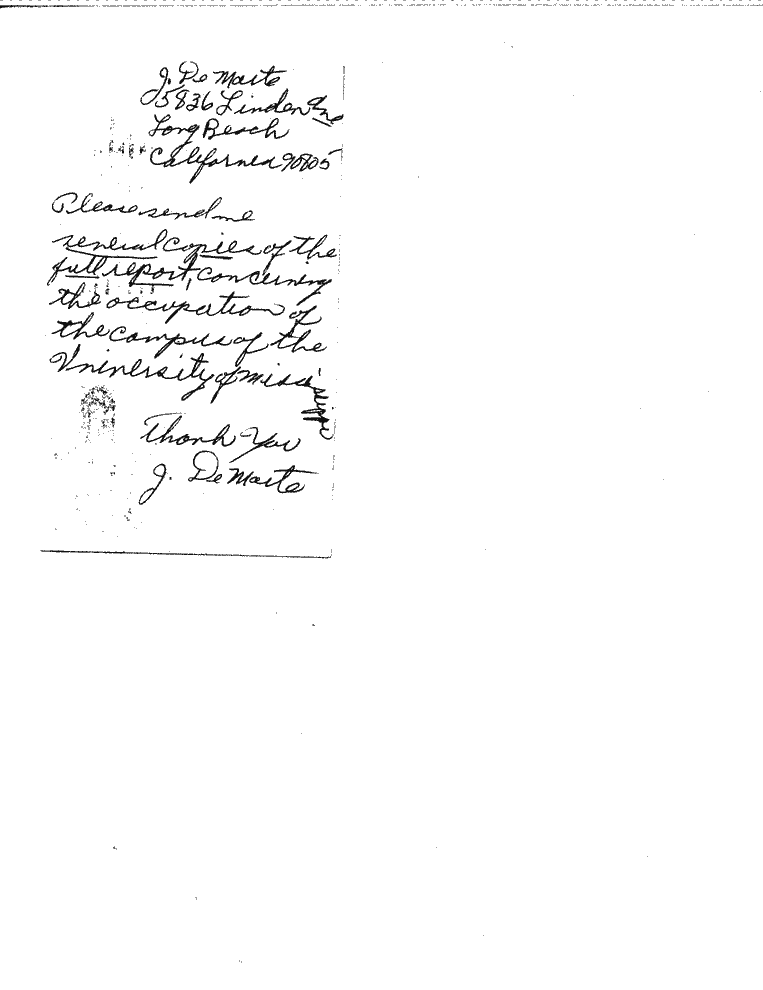 J. De Maite
5836 Linden Ave
Long Beach
California 90805
Please send me
several copies of the
full report, concerning
the occupation of
the campus of the
University of missi
ssippi
Thank You
J. De Maite